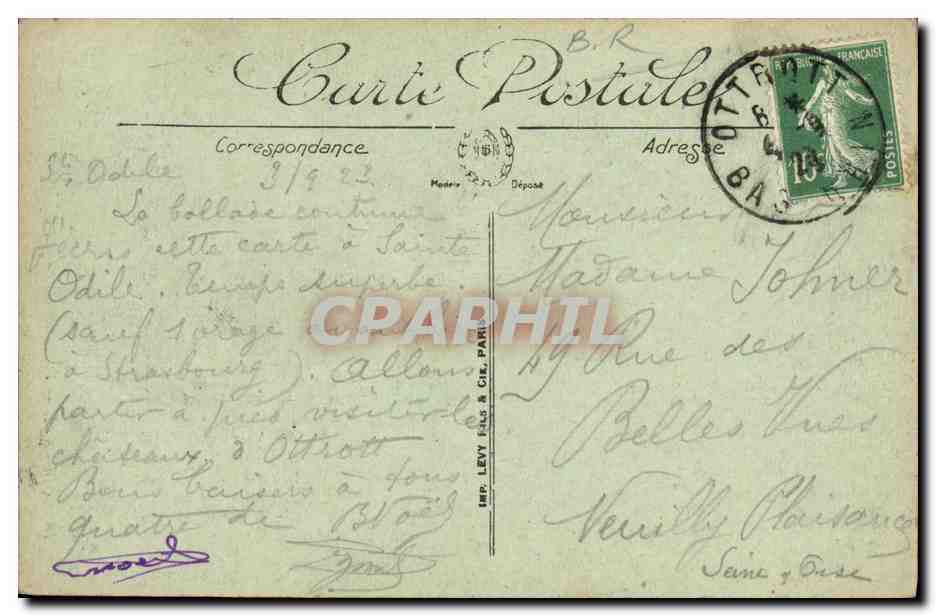 B.R
Carte Postale
Correspondance
Adresse
Modèle Déposé
RÉPUBLIQUE FRANÇAISE
POSTES
10
OTTROTT
BAS RHIN
Ste Odile 3/9 23
La ballade continue
J'écris cette carte à Sainte
Odile. Temps superbe.
(sauf 1 orage
à Strasbourg). Allons
partir à pied visiter les
châteaux d'Ottrott
Bons baisers à tous
quatre de
Noël
IMP. LEVY FILS & CIE, PARIS
Monsieur
Madame Johner
49 Rue des
Belles Vues
Neuilly Plaisance
Seine & Oise
CPAPHIL